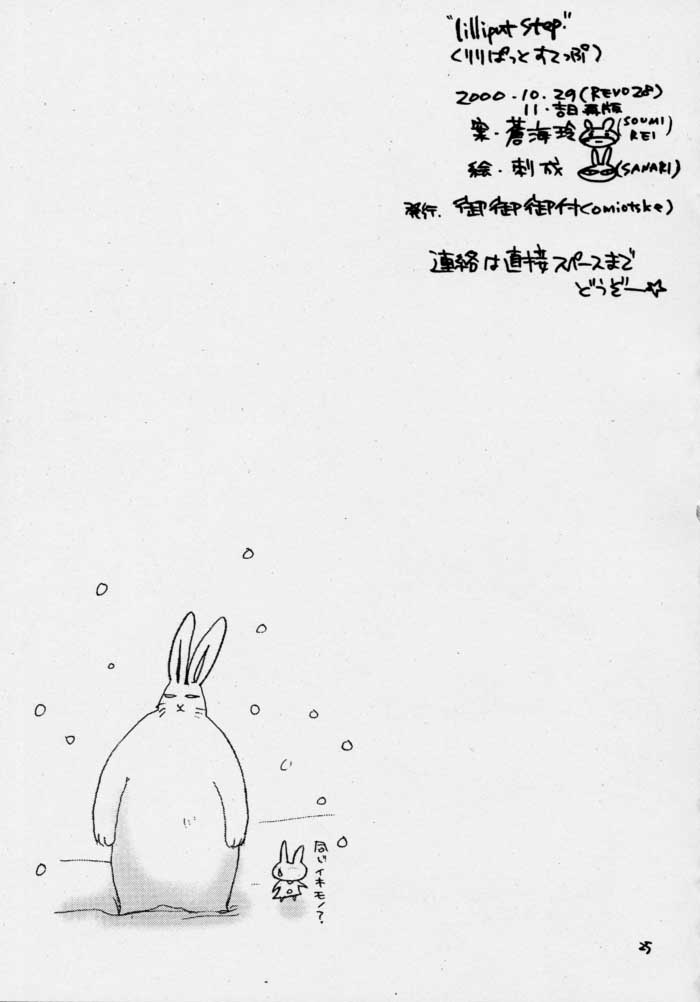 "lilliput step."
(りりぱっと すてっぷ)
2000.10.29(REVO28)
11.吉日再版
案・蒼海玲(SOUMI REI)
絵・刺成(SANARI)
発行.御御御付(omiotske)
連絡は直接スペースまで
どうぞー☆
同じイキモノ?
25